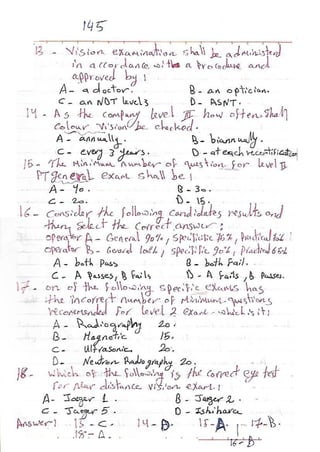 145
13 - Vision examination shall be administed
in accordance with a procedure and
approved by :
A - a doctor. B - an optician.
C - an NDT level 3 D - ASNT.
14 - As the company level III how often shall
Colour Vision be checked.
A - annually. B - biannually.
C - every 3 years. D - at each recertification
15 - The Minimum number of question for level II
PT general exam shall be :
A - 40. B - 30.
C - 20. D - 15.
16 - Consider the following candidates results and
then select the correct answer :
operator A - General 90%, specific 70%, Practical
operator B - General 100%, specific 90%, Practical
A - both pass B - both fail.
C - A Passes, B fails D - A fails, B Passes.
17 - on of the following specific exams has
the incorrect number of Minimum questions
recommended for level 2 exam - which is it :
A - Radiography 20.
B - Magnetic 15.
C - Ultrasonic. 20.
D - Neutron Radiography 20.
18 - which of the following is the correct eye test
for near distance vision exam :
A - Jaeger 1. B - Jaeger 2.
C - Jaeger 5. D - Ishihara
Answer : 13 - C. 14 - D. 15 - A. 17 - B.
18 - A. 16 - D